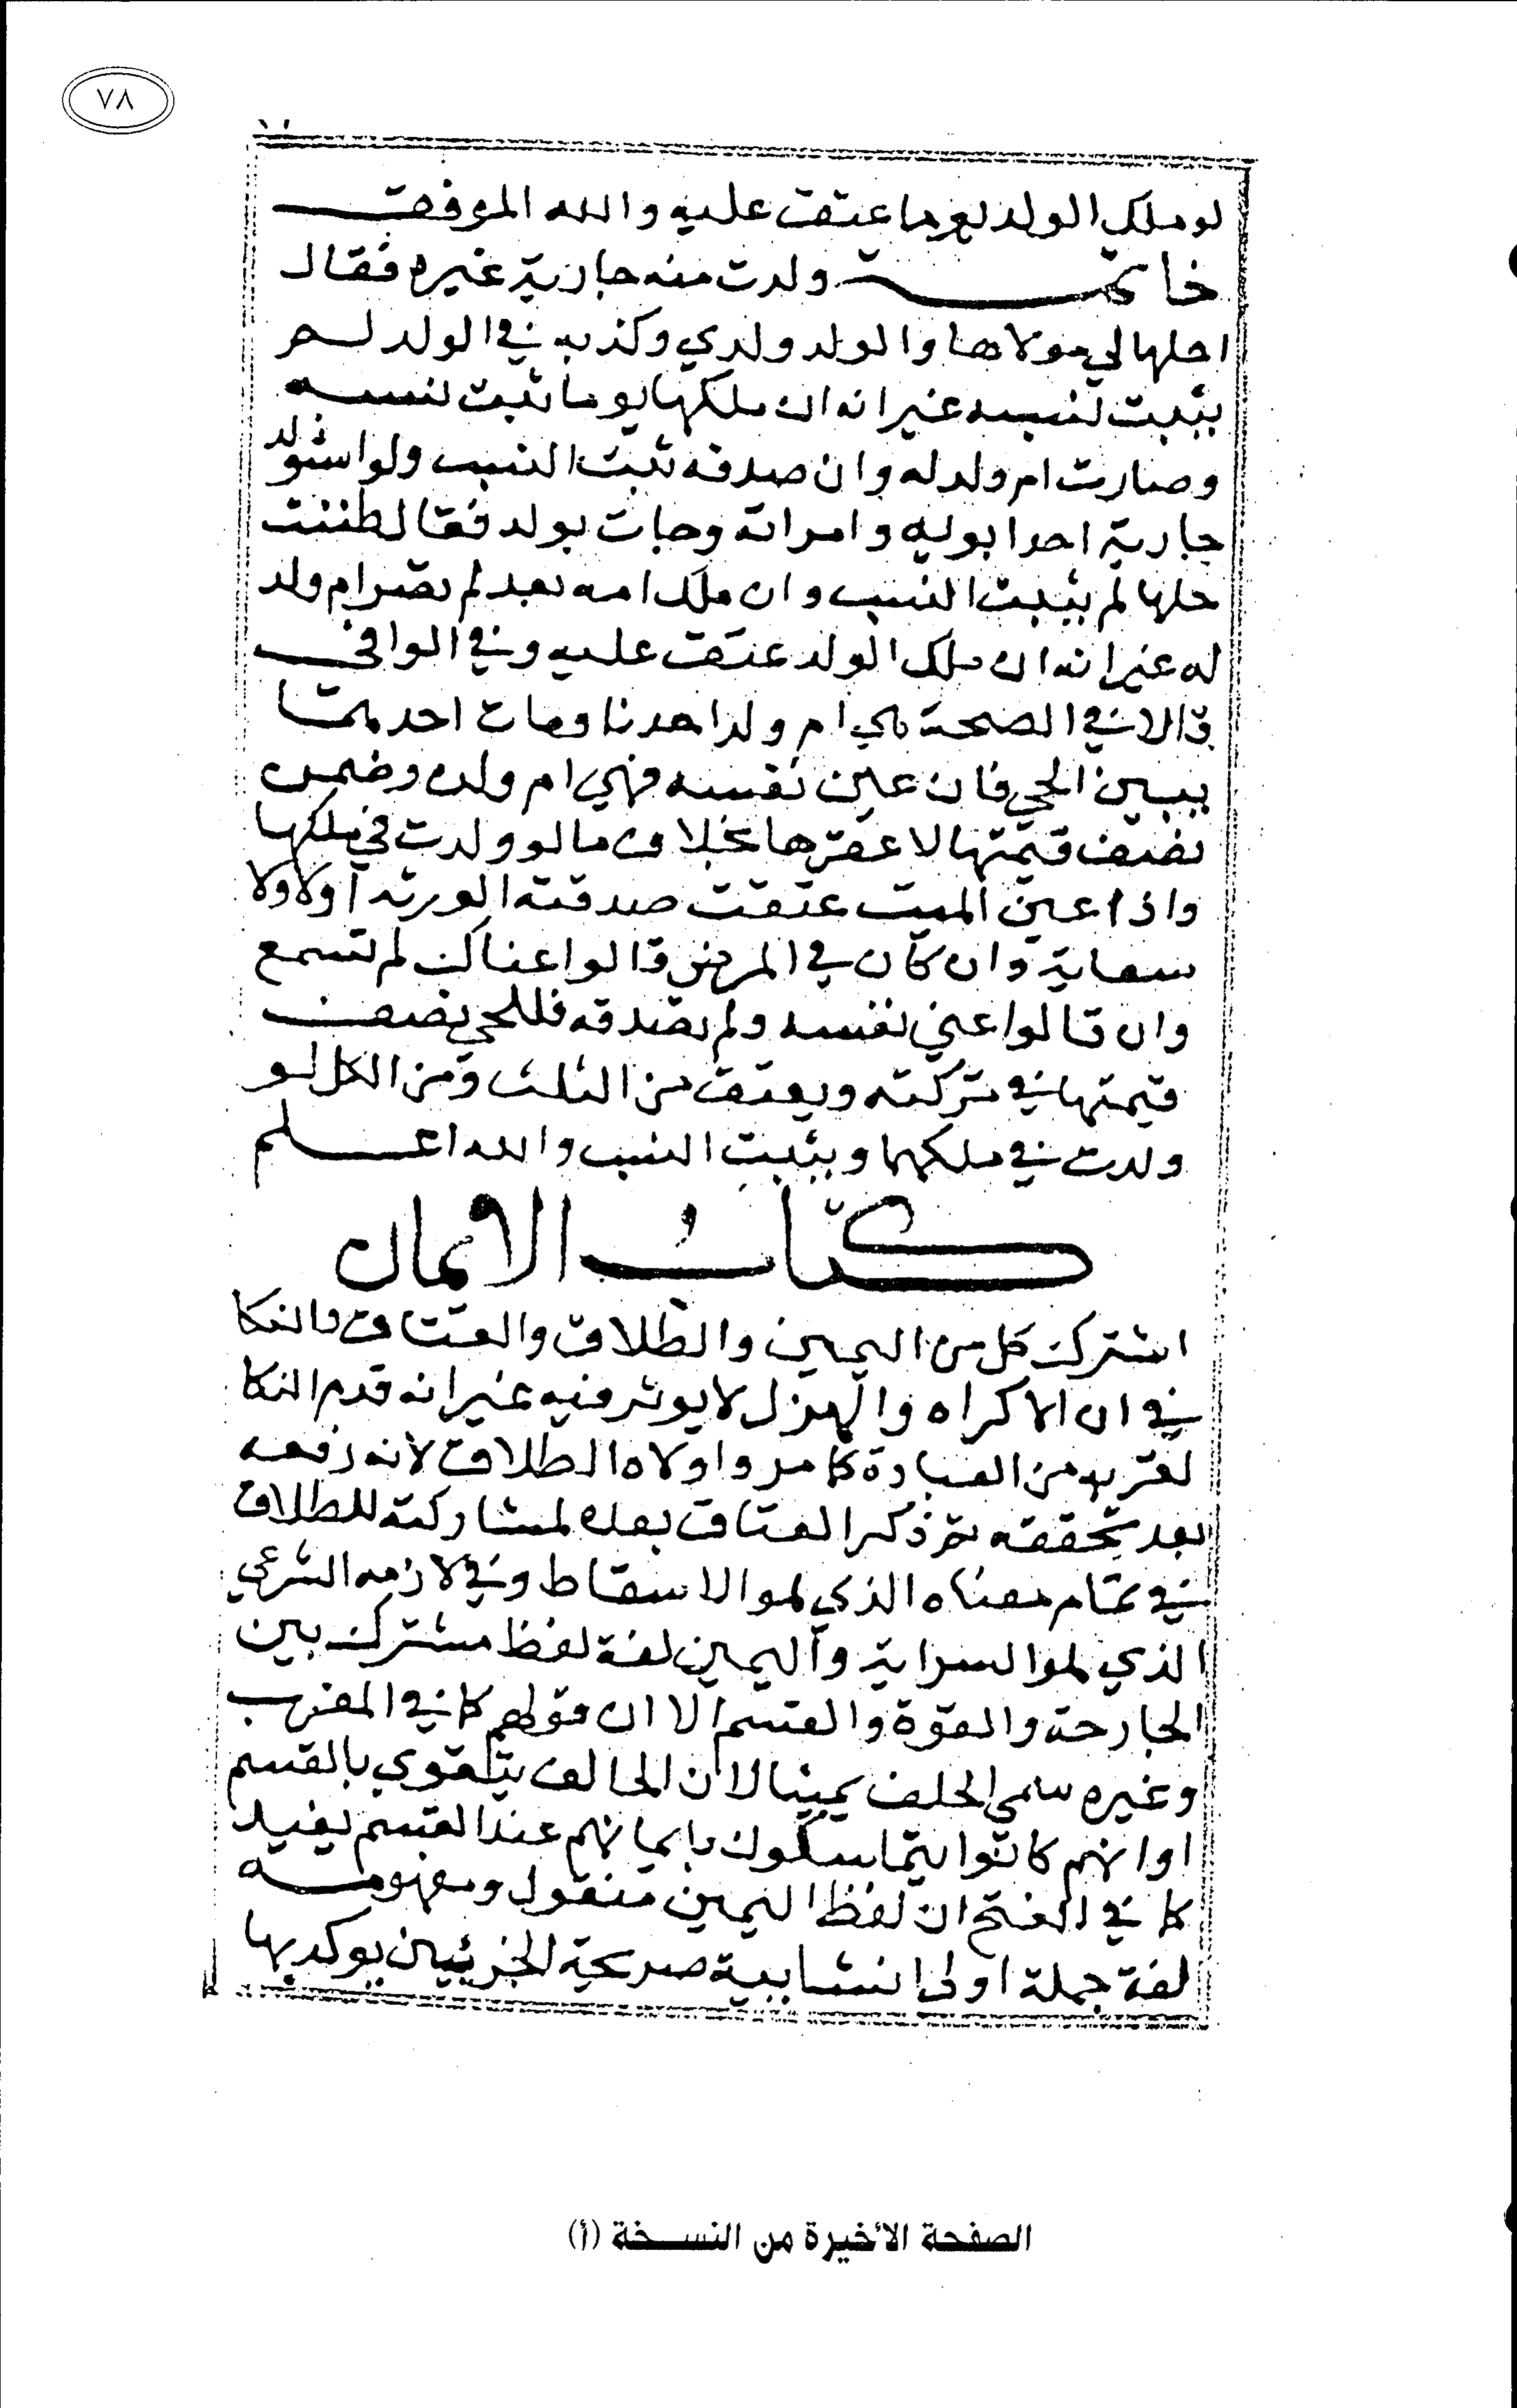 ٧٨
لو ملك الولد يوما عتقت عليه والله الموفق
خاتمة ولدت منه جارية غيره فقال
احلها لي مولاها والولد ولدي وكذبه في الولد لم
يثبت نسبه غير انه ان ملكها يوما ثبت نسبه
وصارت ام ولد له وان صدقه ثبت النسب ولو استولد
جارية احد ابويه وامراته وجات بولد فقال ظننت
حلها لم يثبت النسب وان ملك امه بعد لم تصر ام ولد
له غير انه ان ملك الولد عتق عليه وفي الوافي
قالا في الصحة هي ام ولد احدنا ومات احدهما
يبين الحي فان عين نفسه فهي ام ولده وضمن
نصف قيمتها لا عقرها بخلاف ما لو ولدت في ملكها
واذا عين الميت عتقت صدقته الورثة اولا ولا
سعاية وان كان في المرض قالوا عناك لم تسمع
وان قالوا عني نفسه ولم تصدقه فللحي نصف
قيمتها في تركته ويعتق من الثلث ومن الكل لو
ولدت في ملكهما ويثبت النسب والله اعلم
كتاب الايمان
اشترك كل من اليمين والطلاق والعتاق والنكا
في ان الاكراه والهزل لا يوثر فيه غير انه قدم النكا
لقربه من العبادة كما مر واولاه الطلاق لانه رفعه
بعد تحققه ثم ذكر العتاق بعده لمشاركته للطلاق
في تمام معناه الذي هو الاسقاط وفي لازمه الشرعي
الذي هو السراية واليمين لغة لفظ مشترك بين
الجارحة والقوة والقسم الا ان قولهم كما في المغرب
وغيره سمي الحلف يمينا لان الحالف يتقوي بالقسم
او انهم كانوا يتماسكون بايمانهم عند القسم يفيد
كما في الفتح ان لفظ اليمين منقول ومفهومه
لغة جملة اولى انشايية صريحة الجزئيين يوكد بها
الصفحة الأخيرة من النسخة (أ)